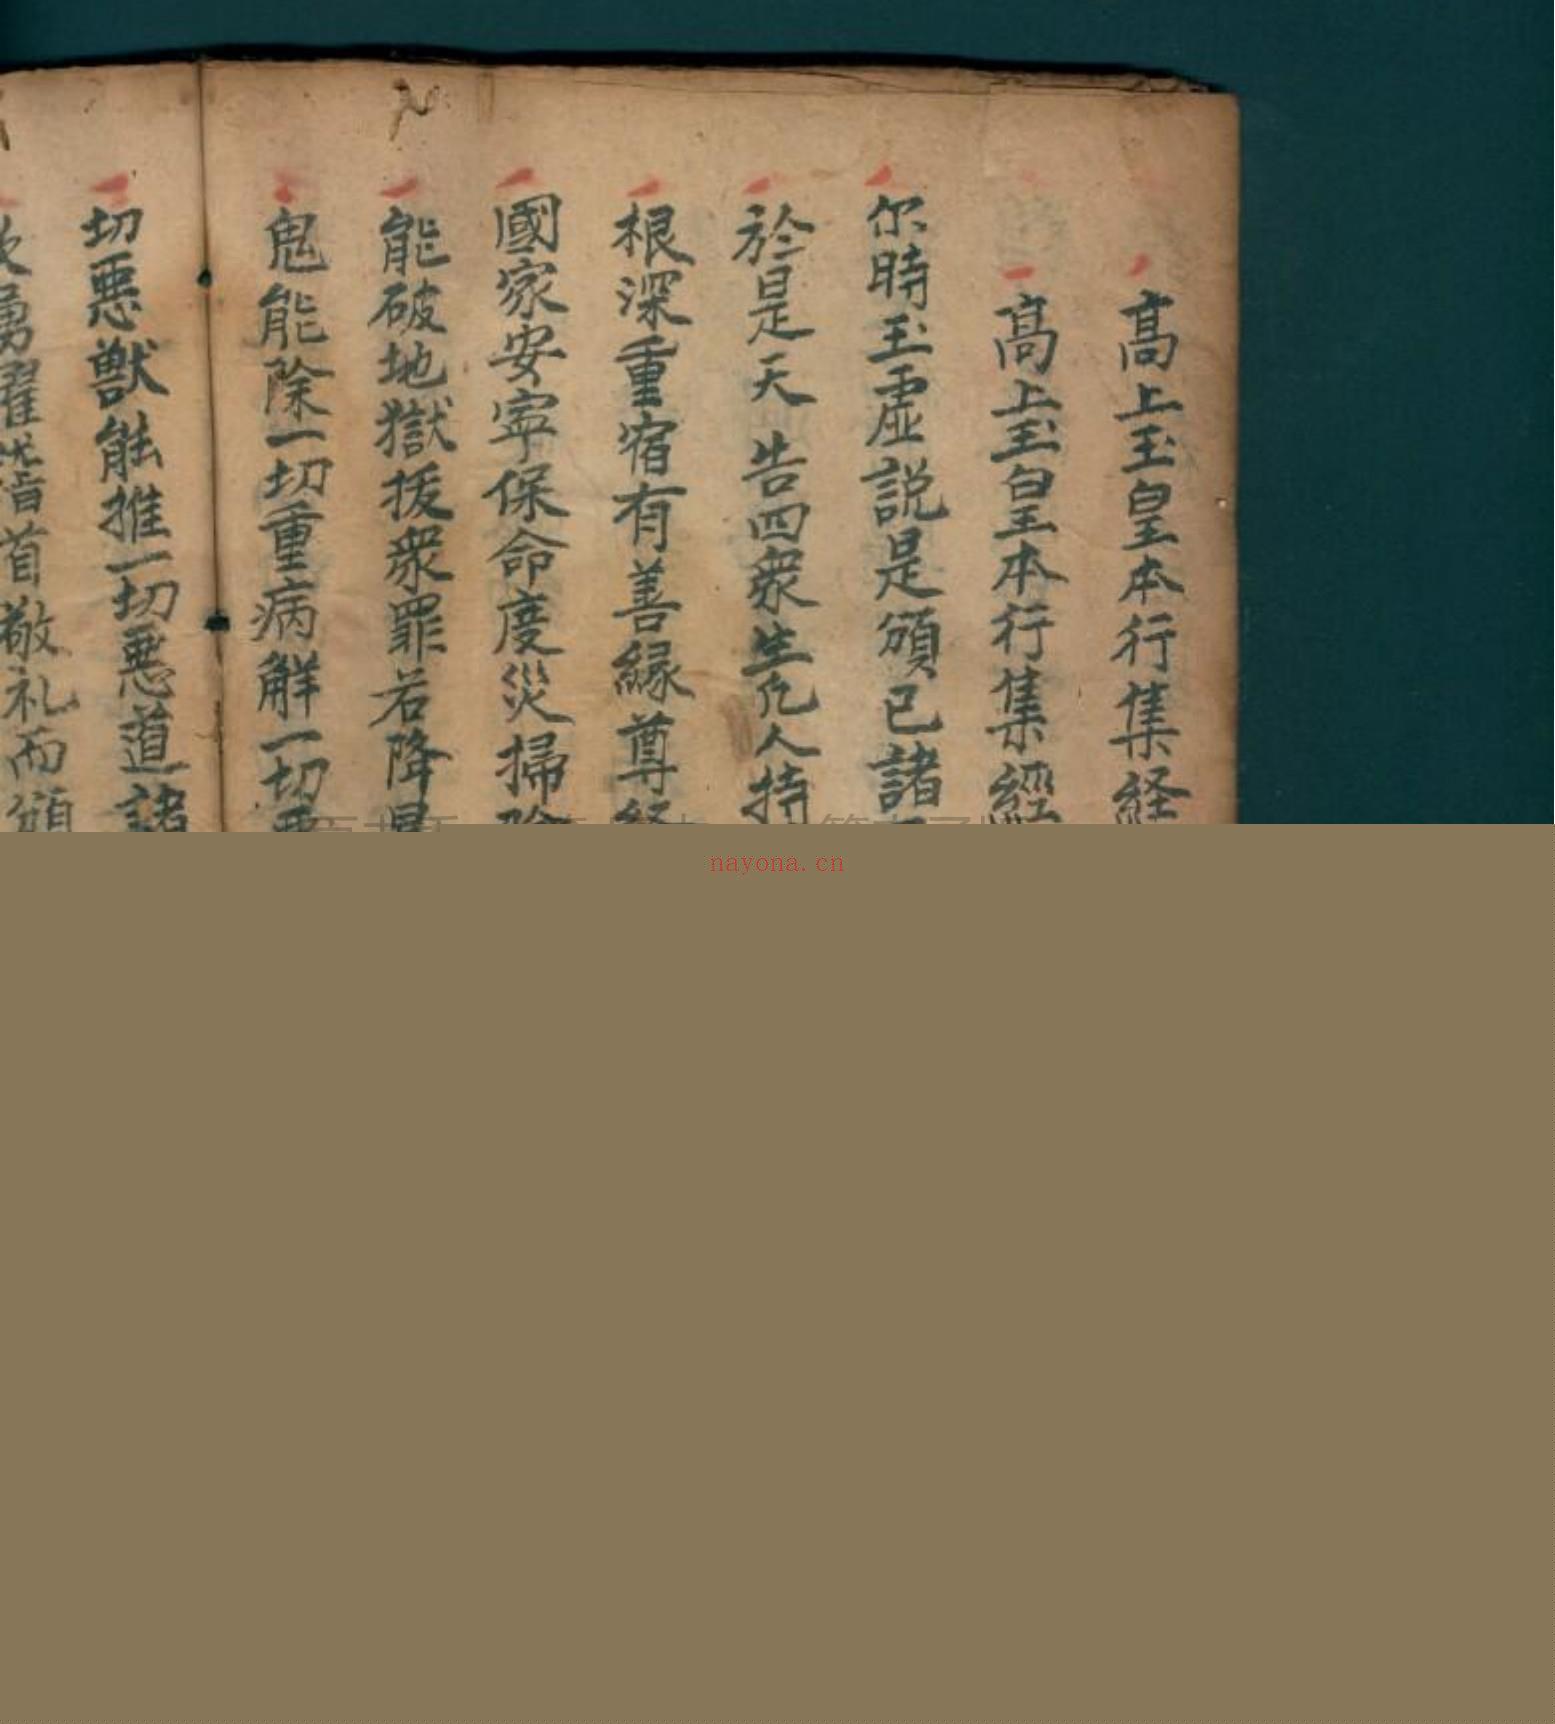 高上玉皇本行集経
高上玉皇本行集經
尔時玉虚説是頒已諸
於是天 告四衆生凢人持
根深重宿有善縁尊経
國家安寧保命度災掃除
能破地獄拔衆罪若降
鬼能除一切重病解一切
切悪獣能推一切悪道諸
首敬礼而頒
nayona.cn